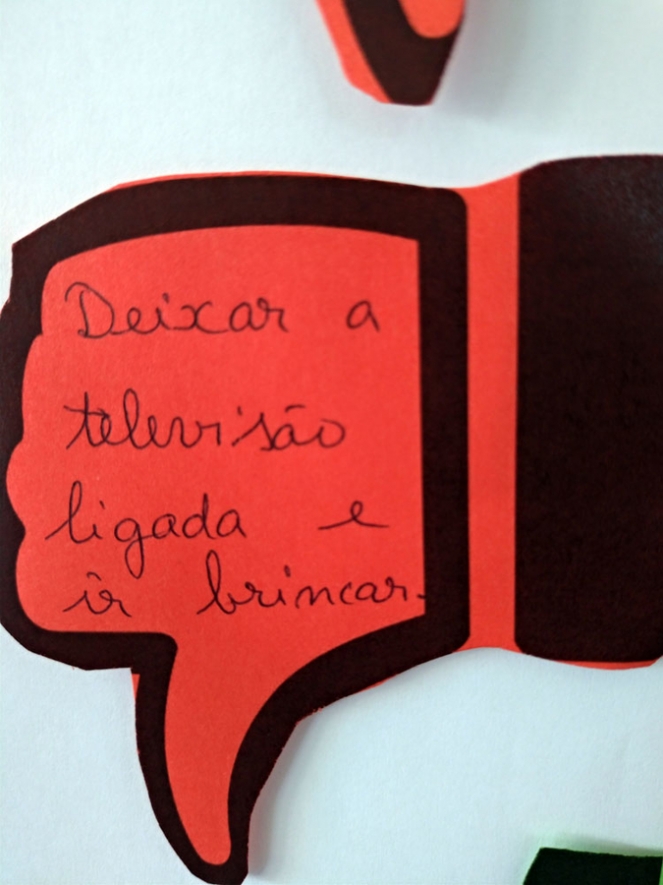 Deixar a
televisão
ligada e
ir brincar.